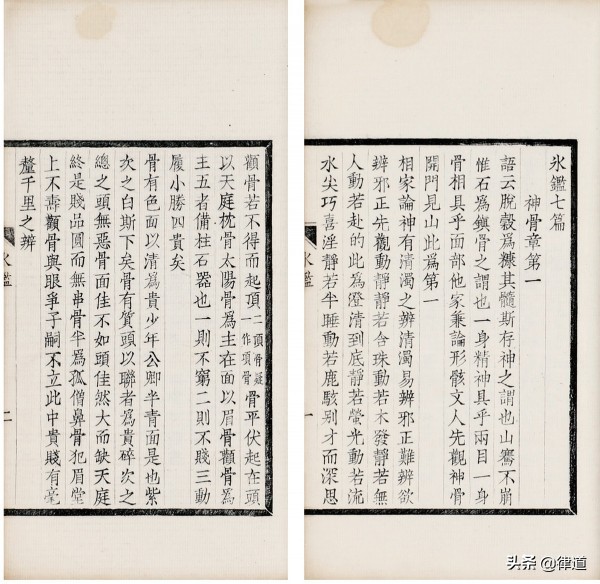 氷鑑七篇
神骨章第一
語云脫穀爲糠其髓斯存神之謂也山騫不崩
惟石爲鎮骨之謂也一身精神具乎兩目一身
骨相具乎面部他家兼論形骸文人先觀神骨
開門見山此爲第一
相家論神有清濁之辨清濁易辨邪正難辨欲
辨邪正先觀動靜靜若含珠動若木發靜若無
人動若赴的此爲澄清到底靜若螢光動若流
水尖巧喜淫靜若半睡動若鹿駭别才而深思
一
顴骨若不得而起頂二頭骨疑一作項骨骨平伏起在頭
以天庭枕骨太陽骨爲主在面以眉骨顴骨爲
主五者備柱石器也一則不窮二則不賤三動
履小勝四貴矣
骨有色面以清爲貴少年公卿半青面是也紫
次之白斯下矣骨有質頭以聯者爲貴碎次之
總之頭無惡骨面佳不如頭佳然大而缺天庭
終是賤品圓而無串骨半爲孤僧鼻骨犯眉堂
上不壽顴骨與眼爭子嗣不立此中貴賤有毫
釐千里之辨
氷鑑
二
头条 @律道